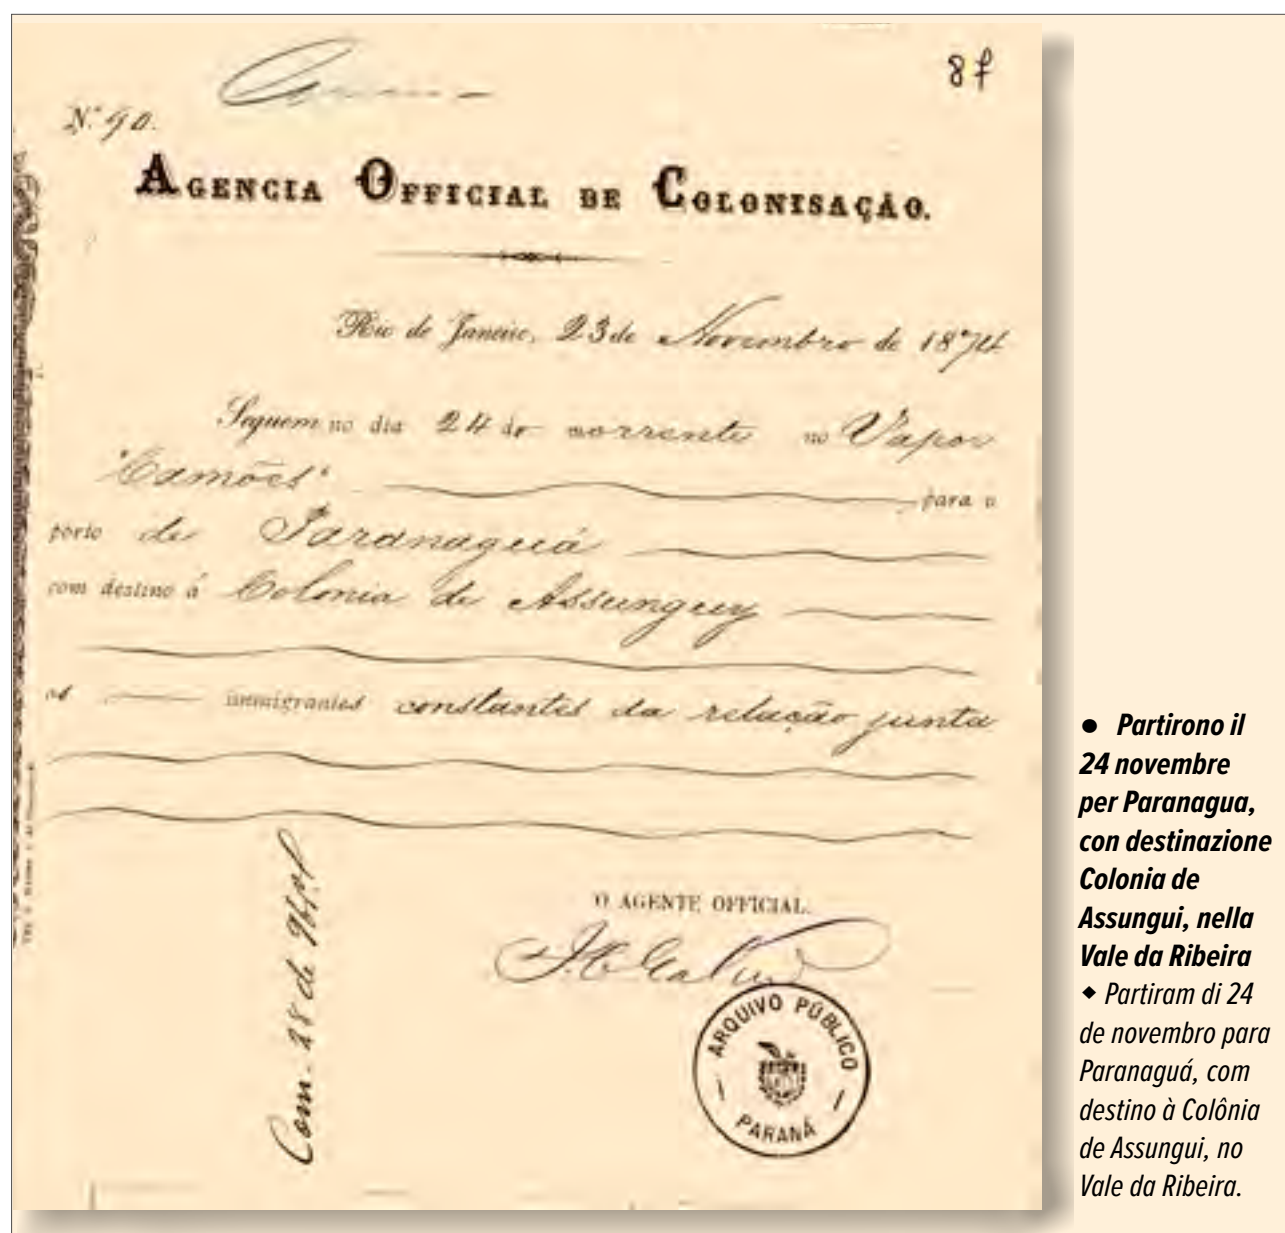 8f
Nº 90.
AGENCIA OFFICIAL DE COLONISAÇÃO.
Rio de Janeiro, 23 de Novembro de 1874
Seguem no dia 24 do corrente no Vapor
"Camões" para o
porto de Paranaguá
com destino á Colonia de Assunguy
os immigrantes constantes da relação junta
O AGENTE OFFICIAL.
Com. 28 de
ARQUIVO PÚBLICO
PARANÁ
● Partirono il
24 novembre
per Paranagua,
con destinazione
Colonia de
Assungui, nella
Vale da Ribeira
◆ Partiram di 24
de novembro para
Paranaguá, com
destino à Colônia
de Assungui, no
Vale da Ribeira.